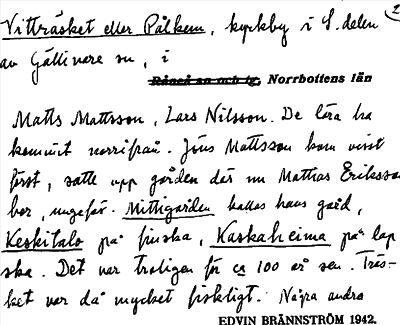 Vitträsket eller Pålkem, kyrkby i S. delen
av Gällivare sn, i
Råneå sn och tg, Norrbottens län
Matts Mattsson, Lars Nilsson. De lära ha
kommit norrifrån. Jöns Mattsson kom visst
först, satte upp gården där nu Mattias Eriksson
bor, ungefär. Mittigården kallas hans gård,
Keskitalo på finska, Kaskaheima på lap
ska. Det var troligen för ca 100 år sen. Träs-
ket var då mycket fiskligt. Några andra
EDVIN BRÄNNSTRÖM 1942.